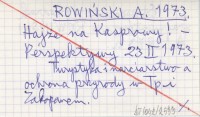 ROWIŃSKI A. 1973.
Hajże na Kasprowy! -
Perspektywy - 23 II 1973.
Turystyka i narciarstwo a
ochrona przyrody w Tp. i
Zakopanem.